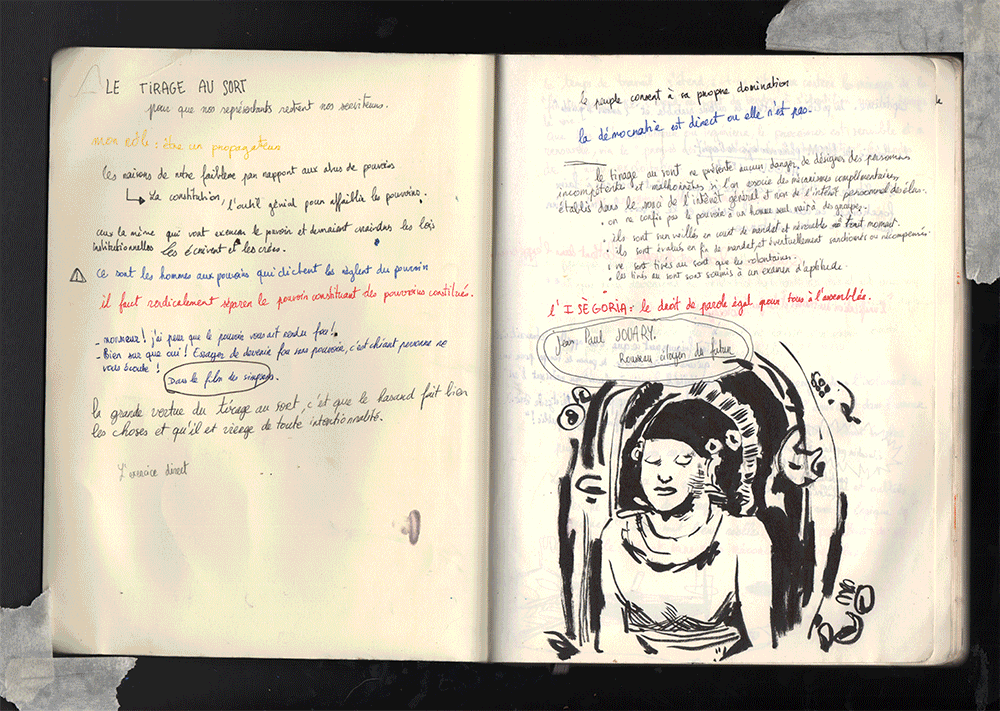 LE TIRAGE AU SORT
pour que nos représentants restent nos serviteurs.
mon rôle : être un propagateur
les raisons de notre faiblesse par rapport aux abus de pouvoirs
La constitution, l'outil génial pour affaiblir les pouvoirs.
ceux la même qui vont exercer le pouvoir et devraient craindre les lois
institutionnelles les écrivent et les créés.
ce sont les hommes aux pouvoirs qui dictent les règles du pouvoir
il faut radicalement séparer le pouvoir constituant des pouvoirs constitués.
- monsieur ! j'ai peur que le pouvoir vous ait rendu fou !
- Bien sur que oui ! Essayer de devenir fou sans pouvoir, c'est chiant personne ne
vous écoute !
Dans le film des simpsons.
la grande vertue du tirage au sort, c'et que le hasard fait bien
les choses et qu'il et vierge de toute intentionnalité.
L'exercice direct
le peuple consent à sa propre domination
la démocratie est direct ou elle n'est pas.
le
le tirage au sort ne présente aucun danger, de désigner des personnes
incompétente et malhonnêtes si l'on associe des mécanismes complémentaires
établis dans le souci de l'intérêt général et non de l'intérêt personnel des élus.
• on ne confis pas le pouvoir à un homme seul mais à des groupes.
• ils sont surveillés en court de mandat et révocables à tout moment.
• ils sont évalués en fin de mandat, et éventuellement sanctionnés ou récompensés.
• ne sont tirés au sort que les volontaires.
• les tirés au sort sont soumis à un examen d'aptitude.
l'ISÈGORIA : le droit de parole égal pour tous à l'assemblée.
Jean Paul JOUARY.
Rousseau citoyen du futur